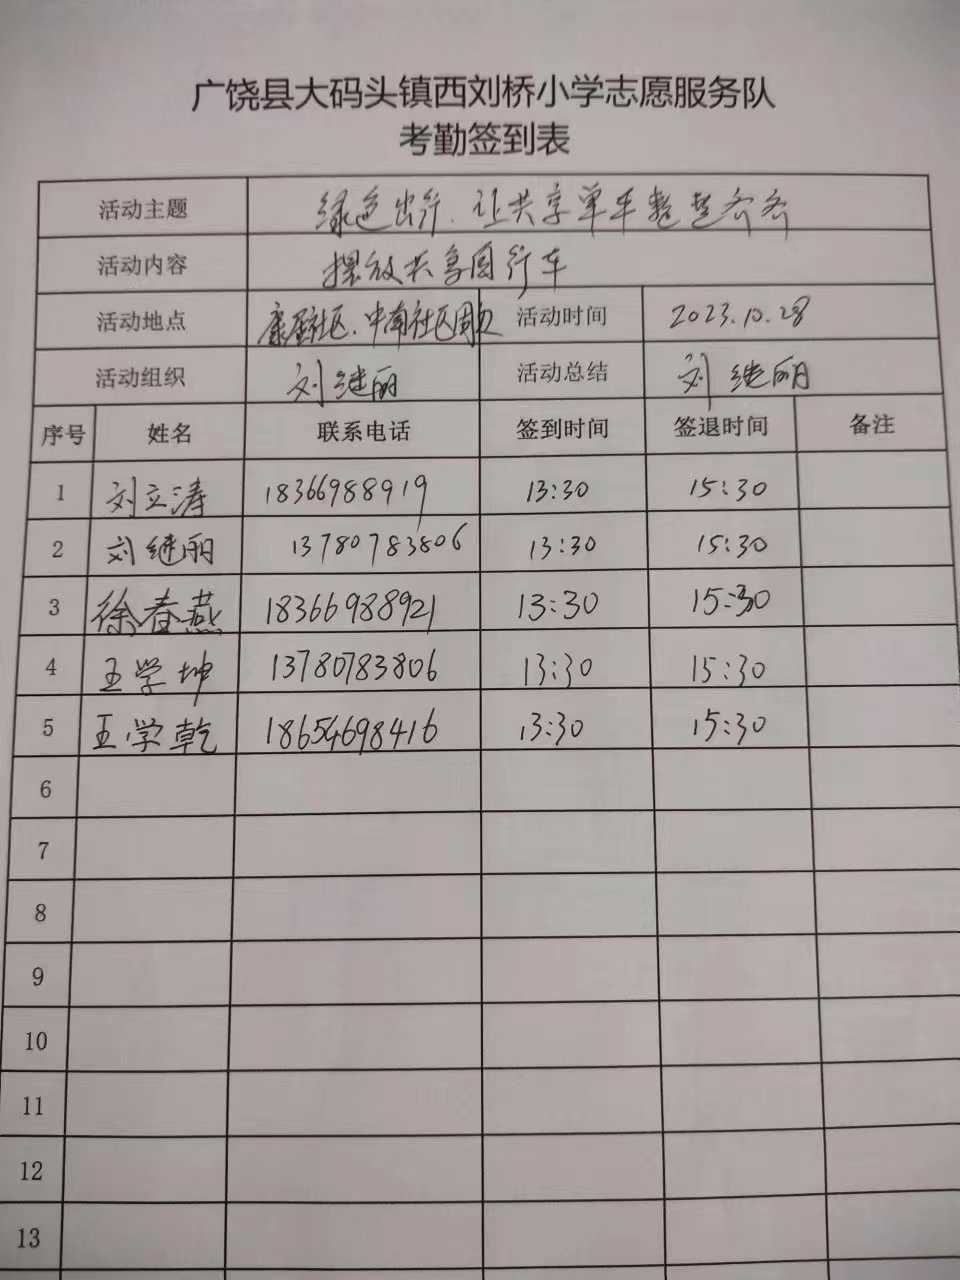 广饶县大码头镇西刘桥小学志愿服务队
考勤签到表
活动主题 绿色出行、让共享单车整整齐齐
活动内容 摆放共享自行车
活动地点 康居社区、中南社区周边 活动时间 2023.10.28
活动组织 刘继丽 活动总结 刘继丽
序号 姓名 联系电话 签到时间 签退时间 备注
1 刘立涛 18366988919 13:30 15:30
2 刘继丽 13780783806 13:30 15:30
3 徐春燕 18366988921 13:30 15:30
4 王学坤 13780783806 13:30 15:30
5 王学乾 18654698416 13:30 15:30
6
7
8
9
10
11
12
13